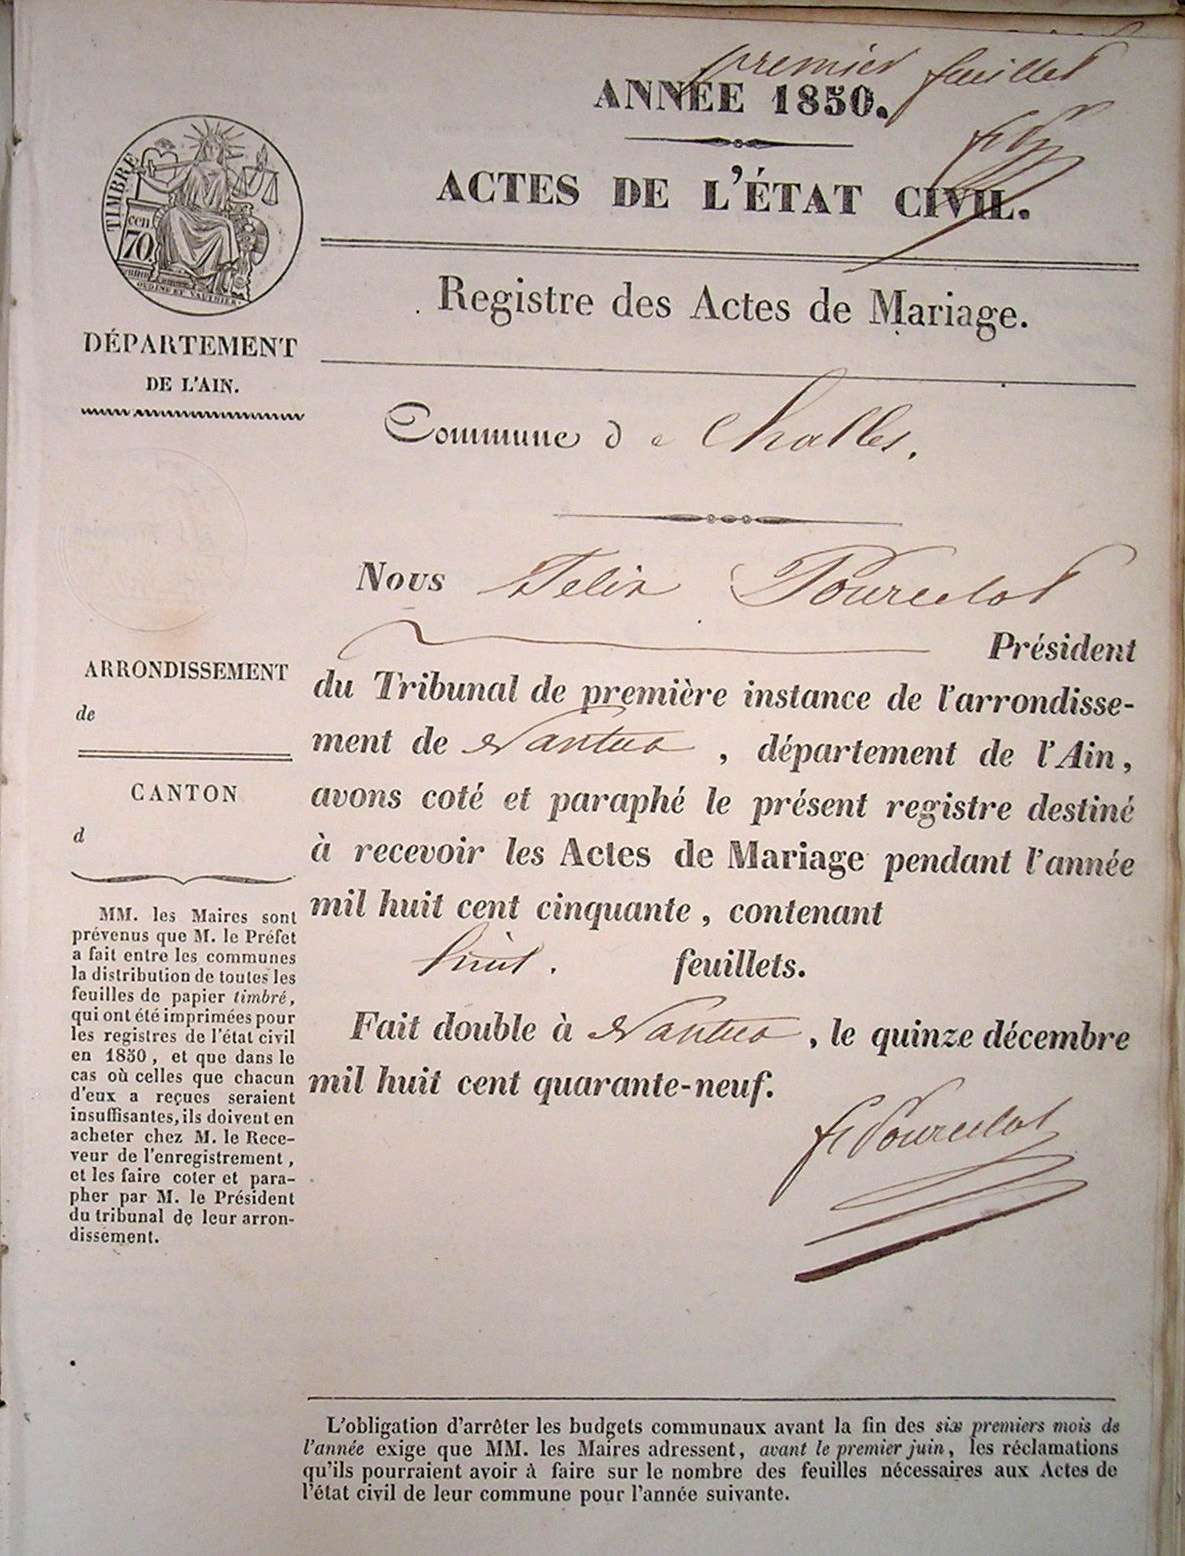 premier feuillet
ANNÉE 1850.
ACTES DE L'ÉTAT CIVIL.
Registre des Actes de Mariage.
TIMBRE
cen
70
OUDINE ET VAUTHIER.
DÉPARTEMENT
DE L'AIN.
Commune de Challes.
Nous Felix Pourcelot
Président
du Tribunal de première instance de l'arrondisse-
ment de Nantua, département de l'Ain,
avons coté et paraphé le présent registre destiné
à recevoir les Actes de Mariage pendant l'année
mil huit cent cinquante, contenant
huit. feuillets.
Fait double à Nantua, le quinze décembre
mil huit cent quarante-neuf.
F Pourcelot
ARRONDISSEMENT
de
CANTON
d
MM. les Maires sont
prévenus que M. le Préfet
a fait entre les communes
la distribution de toutes les
feuilles de papier timbré,
qui ont été imprimées pour
les registres de l'état civil
en 1850, et que dans le
cas où celles que chacun
d'eux a reçues seraient
insuffisantes, ils doivent en
acheter chez M. le Rece-
veur de l'enregistrement,
et les faire coter et para-
pher par M. le Président
du tribunal de leur arron-
dissement.
L'obligation d'arrêter les budgets communaux avant la fin des six premiers mois de
l'année exige que MM. les Maires adressent, avant le premier juin, les réclamations
qu'ils pourraient avoir à faire sur le nombre des feuilles nécessaires aux Actes de
l'état civil de leur commune pour l'année suivante.